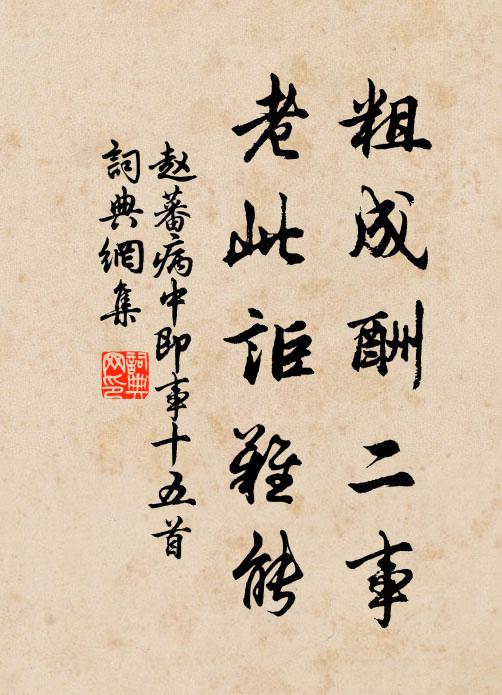 粗成酬二事
老此詎難能
赵蕃病中即事十五首
詞典網集
詞典網印